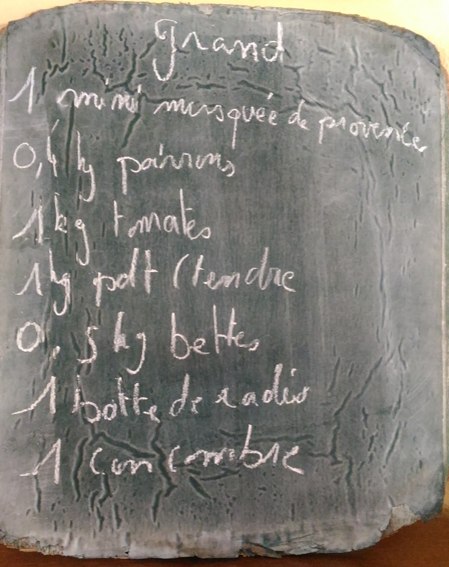 Grand
1 mini musquée de provence
0,4 kg poivrons
1 kg tomates
1 kg pdt (tendre
0,5 kg bettes
1 botte de radis
1 concombre